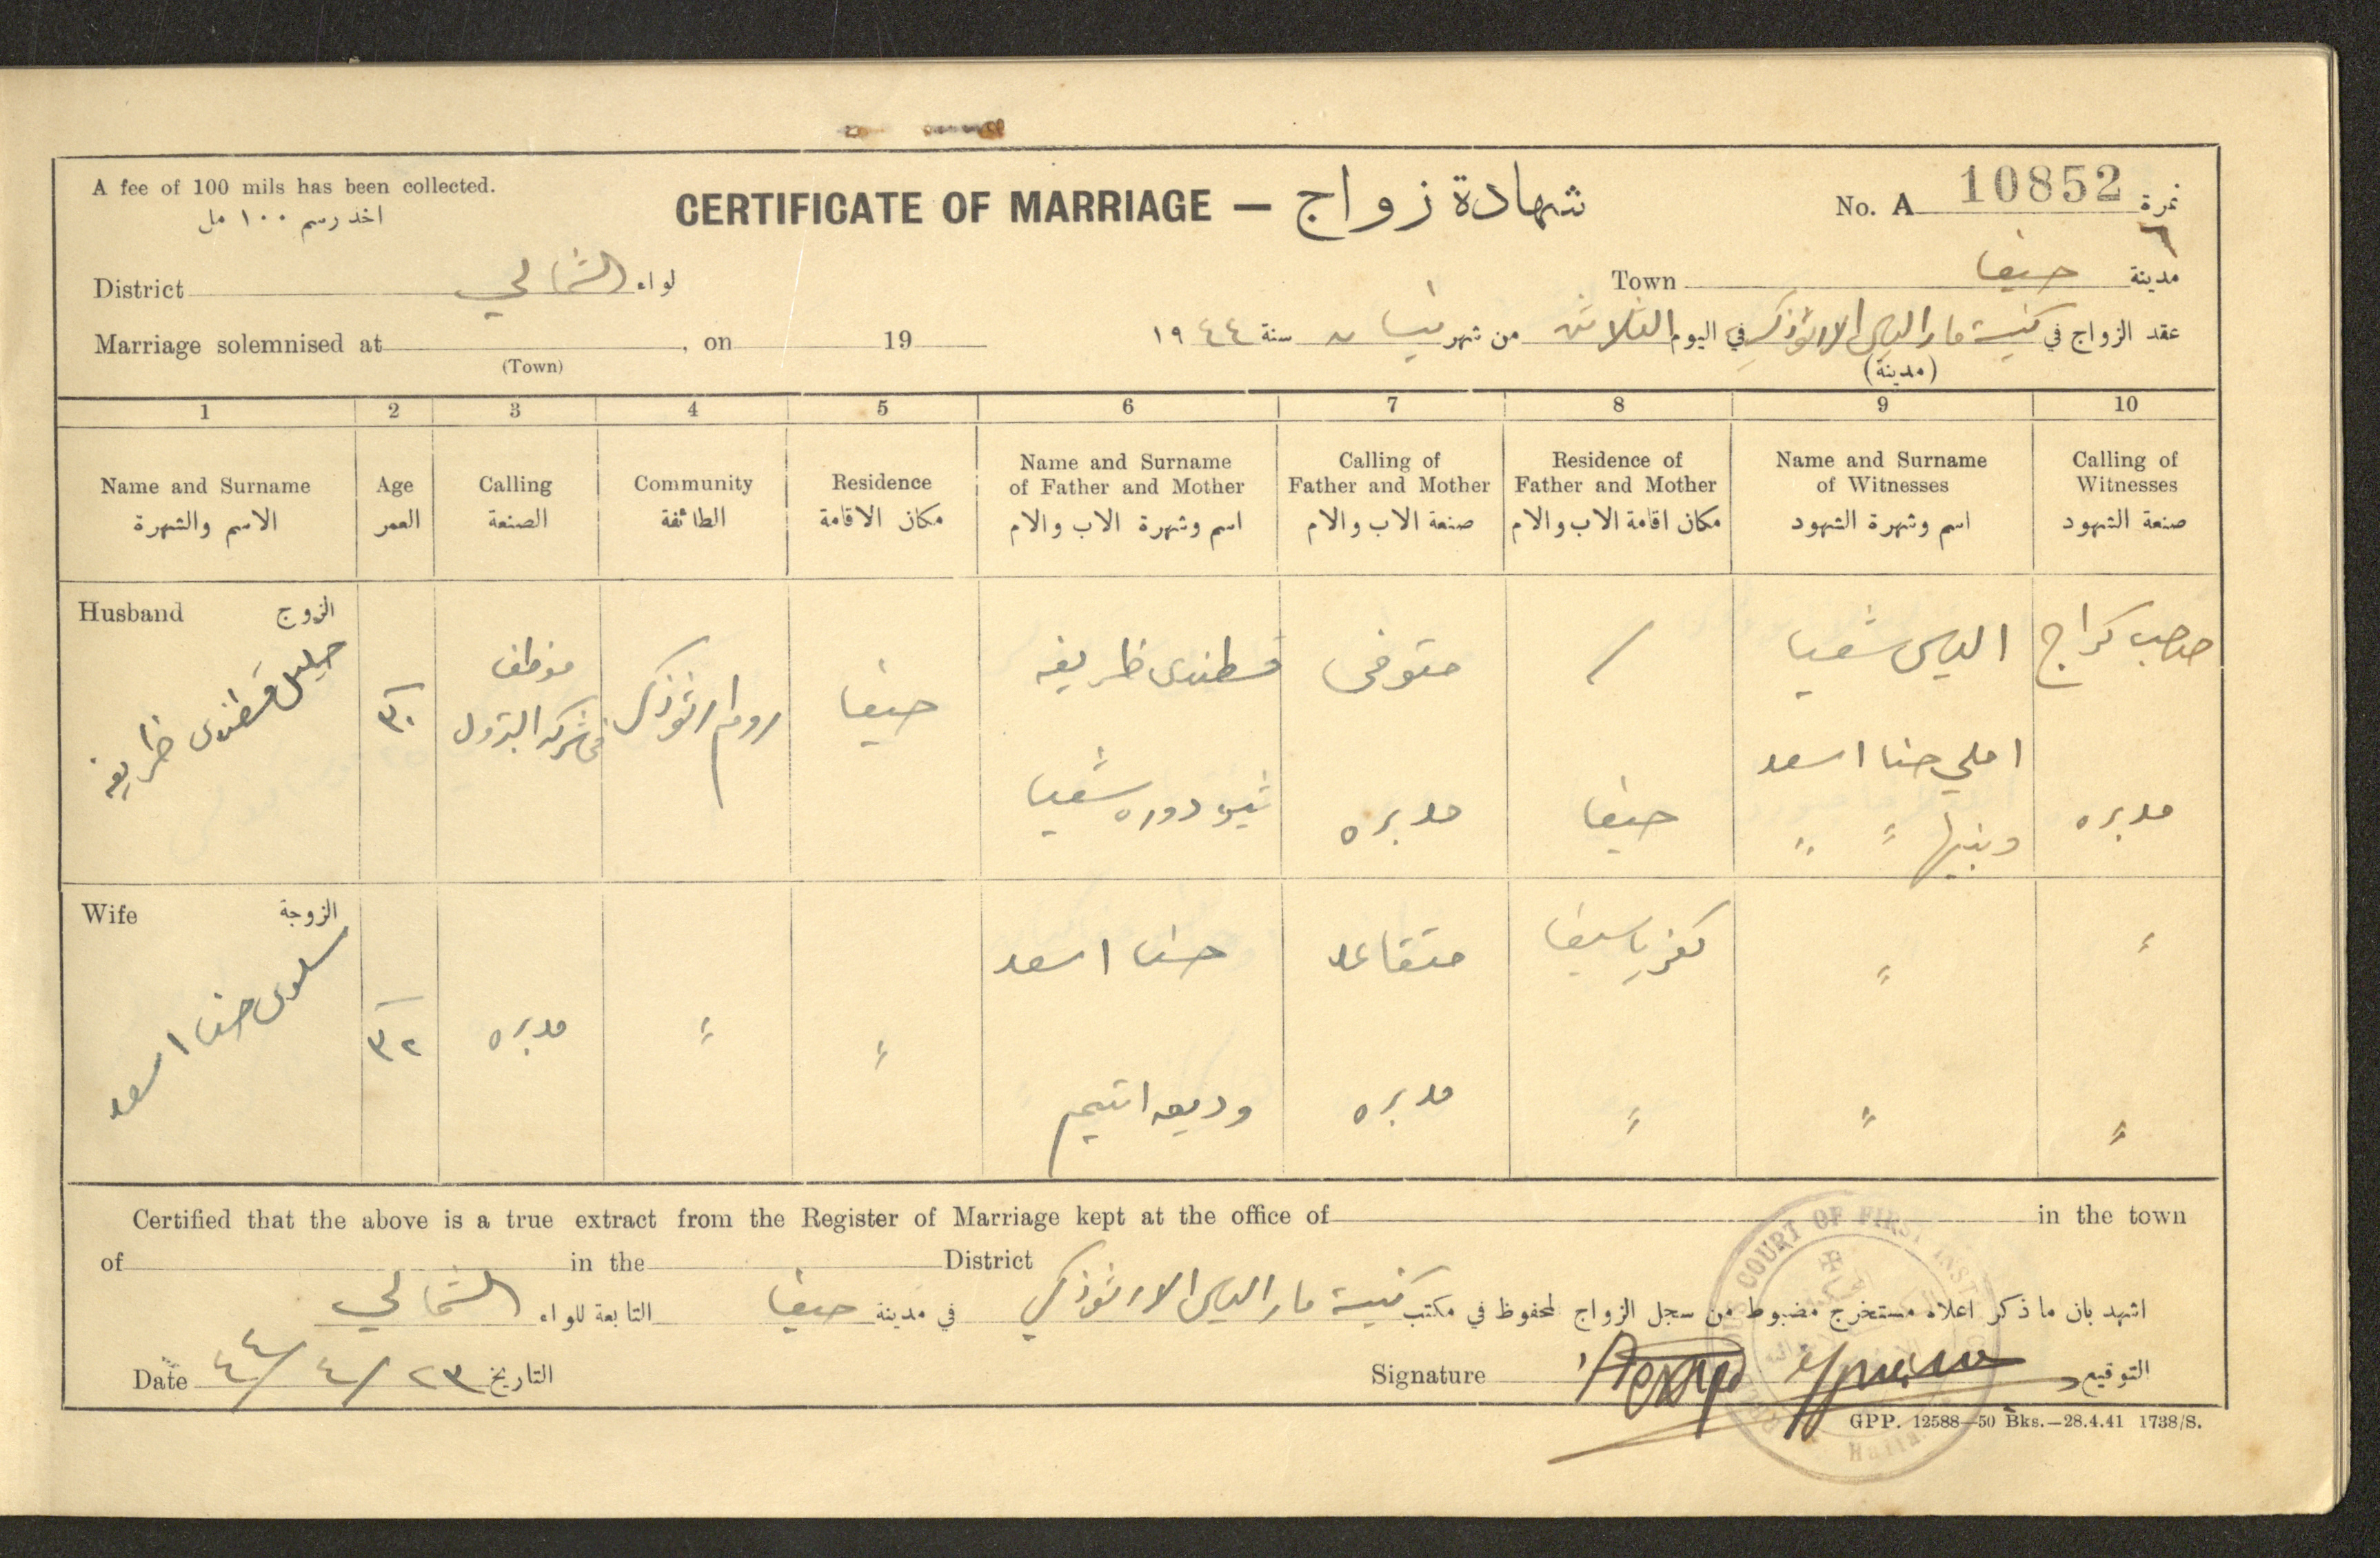 A fee of 100 mils has been collected.
اخذ رسم ١٠٠ مل
CERTIFICATE OF MARRIAGE — شهادة زواج
No. A 10852 نمرة
٦
District الشمالي لواء
Town حيفا مدينة
Marriage solemnised at , on 19
(Town)
عقد الزواج في كنيسة مار الياس الارثوذكسي في اليوم الثلاثون من شهر نيسان سنة ١٩٤٤
(مدينة)
1 2 3 4 5 6 7 8 9 10
Name and Surname
الاسم والشهرة
Age
العمر
Calling
الصنعة
Community
الطائفة
Residence
مكان الاقامة
Name and Surname
of Father and Mother
اسم وشهرة الاب والام
Calling of
Father and Mother
صنعة الاب والام
Residence of
Father and Mother
مكان اقامة الاب والام
Name and Surname
of Witnesses
اسم وشهرة الشهود
Calling of
Witnesses
صنعة الشهود
Husband الزوج
قسطندي ظريفه
٣٠
موظف
في شركة البترول
روم ارثوذكس
حيفا
قسطندي ظريفه
ثيودوره شعيا
متوفى
مدبره
/
حيفا
الياس شعيا
املي حنا اسعد
" "
صاحب كراج
مدبره
Wife الزوجة
سلوى حنا اسعد
٣٢
مدبره
"
"
حنا اسعد
وديعه
متقاعد
مدبره
كفرياسيف
"
"
"
"
"
Certified that the above is a true extract from the Register of Marriage kept at the office of in the town
of in the District
اشهد بان ما ذكر اعلاه مستخرج مضبوط من سجل الزواج المحفوظ في مكتب كنيسة مار الياس الارثوذكسي في مدينة حيفا التابعة للواء الشمالي
Date ٢٣/٤/٤٤ التاريخ
Signature التوقيع
COURT OF FIRST INST
Haifa
GPP. 12588—50 Bks.—28.4.41 1738/S.